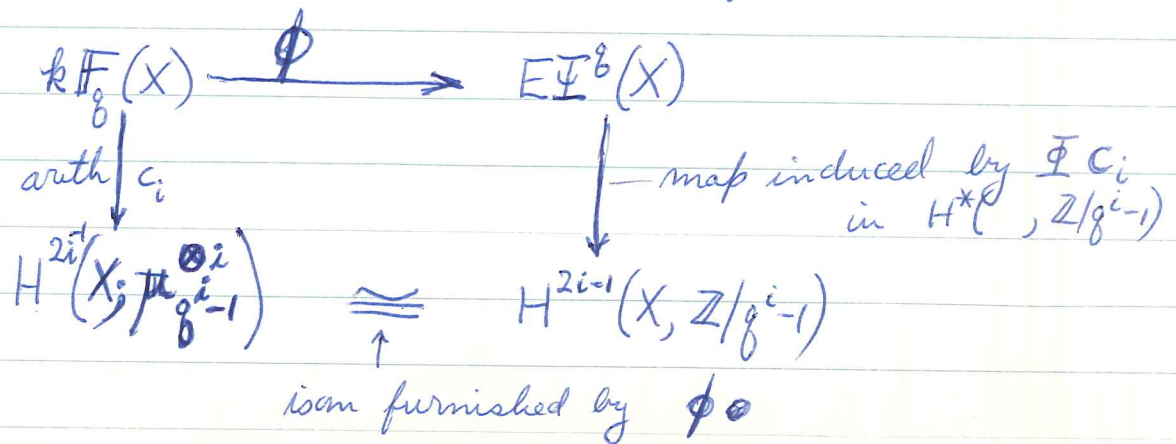 k𝔽_q(X) —ϕ→ EΨ^q(X)
arith c_i — map induced by Φc_i
in H*( , ℤ/q^i-1)
H^{2i-1}(X; μ_{q^i-1}^{⊗i}) ≅ H^{2i-1}(X, ℤ/q^i-1)
↑
isom furnished by ϕ